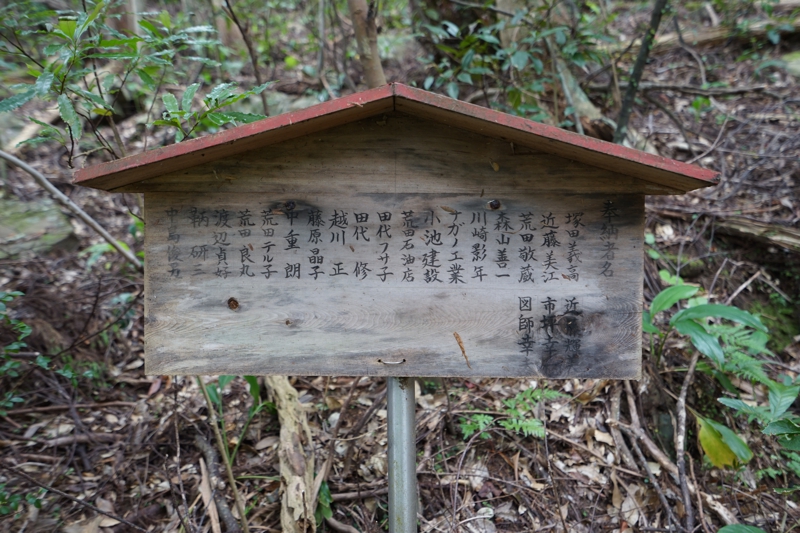 奉納者名
塚田義高
近藤美江
荒田敬蔵
森山善一
川崎影年
ナガノ工業
小池建設
荒田石油店
田代フサ子
田代 修
越川 正
藤原晶子
重 朗
荒田テル子
荒田良丸
渡辺貞好
研三
中島
近
市
図師幸